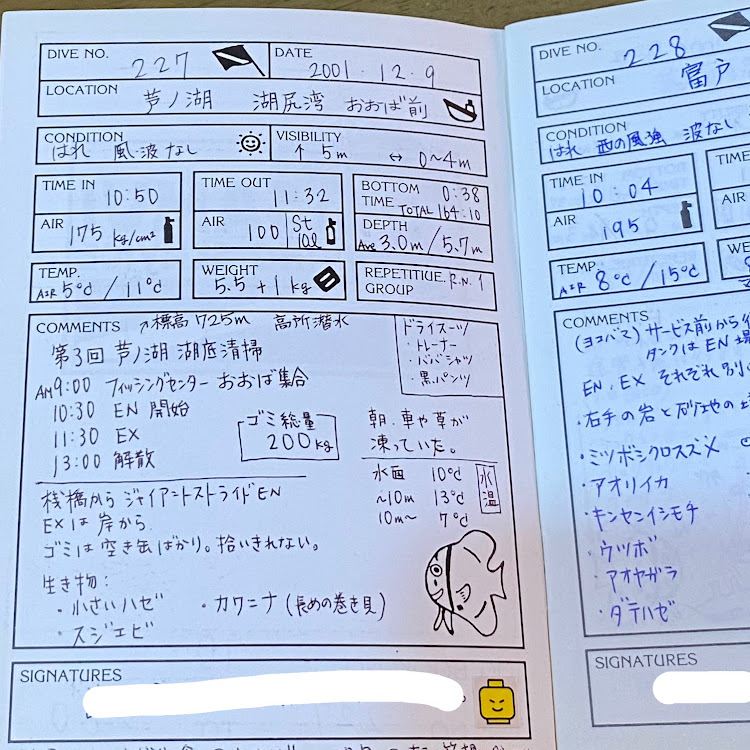 DIVE NO. 227
DATE 2001.12.9
LOCATION 芦ノ湖 湖尻湾 おおば前
CONDITION はれ 風・波なし
VISIBILITY ↑5m ↔0~4m
TIME IN 10:50
TIME OUT 11:32
BOTTOM TIME 0:38
TOTAL 164:10
AIR 175 kg/cm²
AIR 100 St 10ℓ
DEPTH Ave 3.0m/5.7m
TEMP. AIR 5℃/11℃
WEIGHT 5.5+1kg
REPETITIUE GROUP R.N.1
COMMENTS ↗標高725m 高所潜水
ドライスーツ
・トレーナー
・ババシャツ
・黒パンツ
第3回 芦ノ湖 湖底清掃
AM9:00 フィッシングセンター おおば集合
10:30 EN 開始
11:30 EX
13:00 解散
ゴミ総量
200kg
朝、車や草が
凍っていた。
水温
水面 10℃
~10m 13℃
10m~ 7℃
桟橋から ジャイアントストライドEN
EXは岸から
ゴミは空き缶ばかり。拾いきれない。
生き物:
・小さいハゼ ・カワニナ(長めの巻き貝)
・スジエビ
SIGNATURES
DIVE NO. 228
LOCATION 富戸
CONDITION はれ 西の風強 波なし
TIME IN 10:04
AIR 195
TEMP. AIR 8℃/15℃
COMMENTS
(ヨコバマ)サービス前から
タンクはEN
EN、EX それぞれ別
・右手の岩と
・ミツボシクロスズメ
・アオリイカ
・キンセンイシモチ
・ウツボ
・アオヤガラ
・ダテハゼ
SIGNATURES